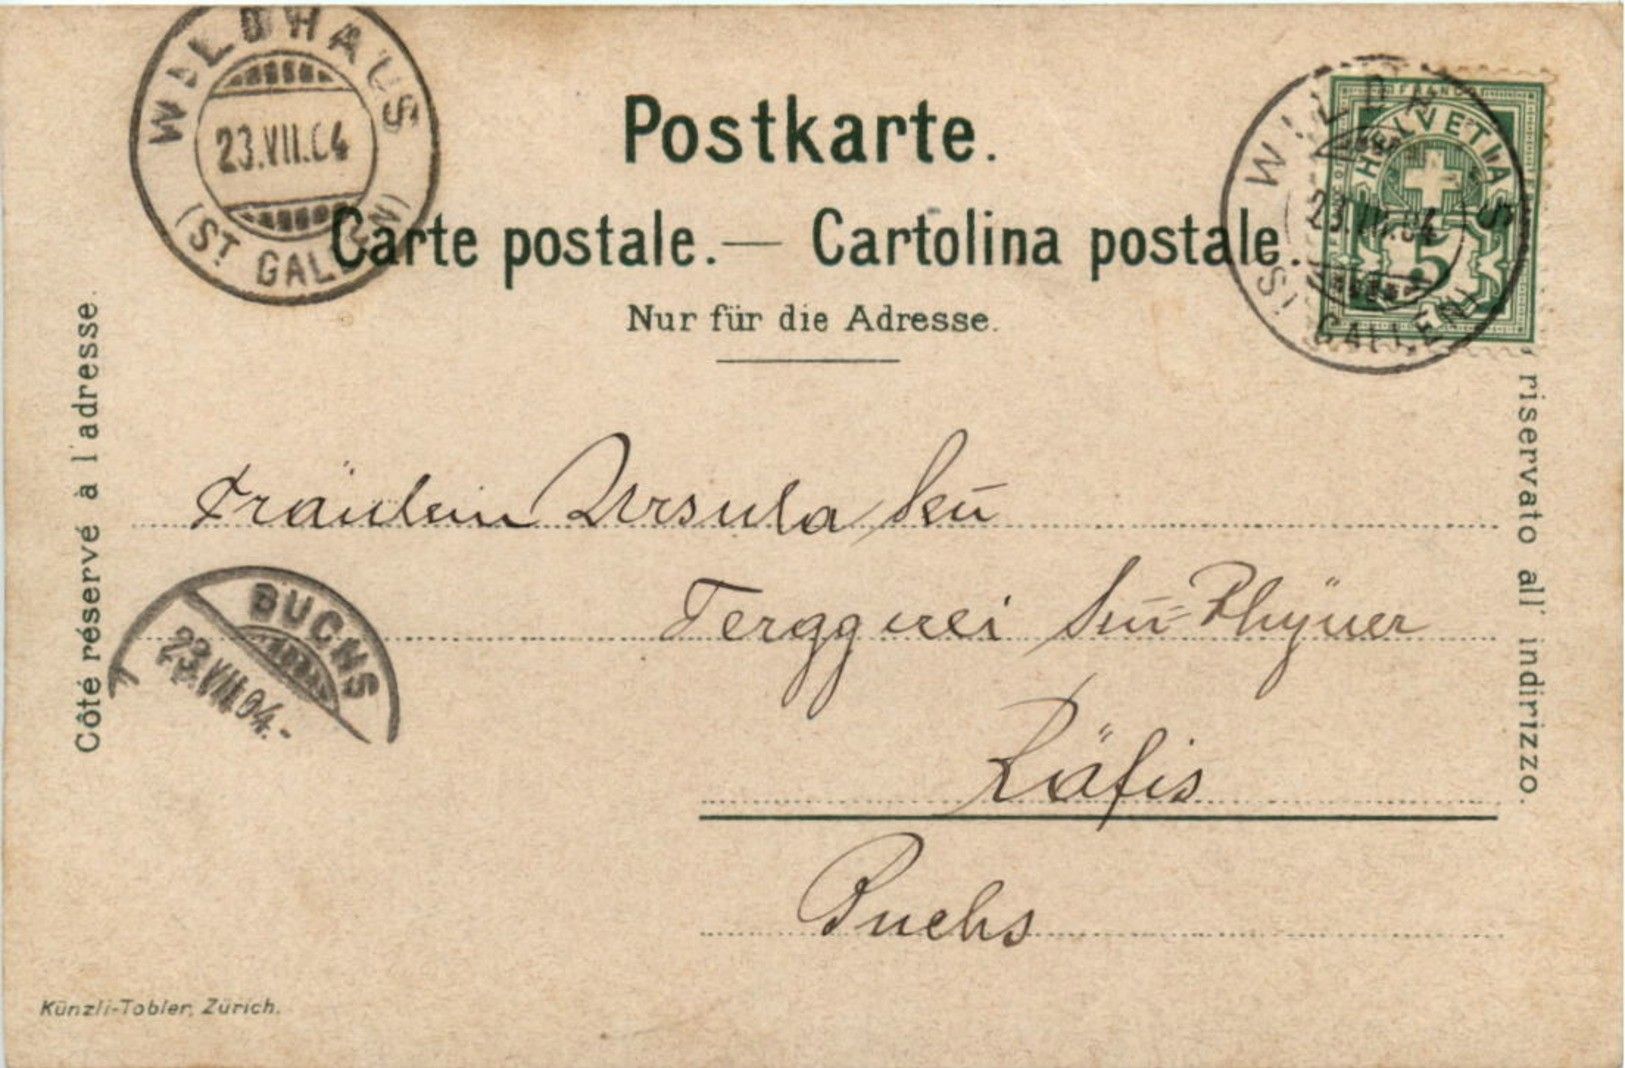 WALDHAUS
23.VII.04
(ST. GALLEN)
Postkarte.
Carte postale. — Cartolina postale.
Nur für die Adresse.
FRANCO
HELVETIA
5
WILDHAUS
23.VII.04
(ST. GALLEN)
Côté réservé à l'adresse.
riservato all' indirizzo.
Fräulein Ursula Seū
Räfis
Buchs
BUCHS
23.VII.04.-
Künzli-Tobler, Zürich.